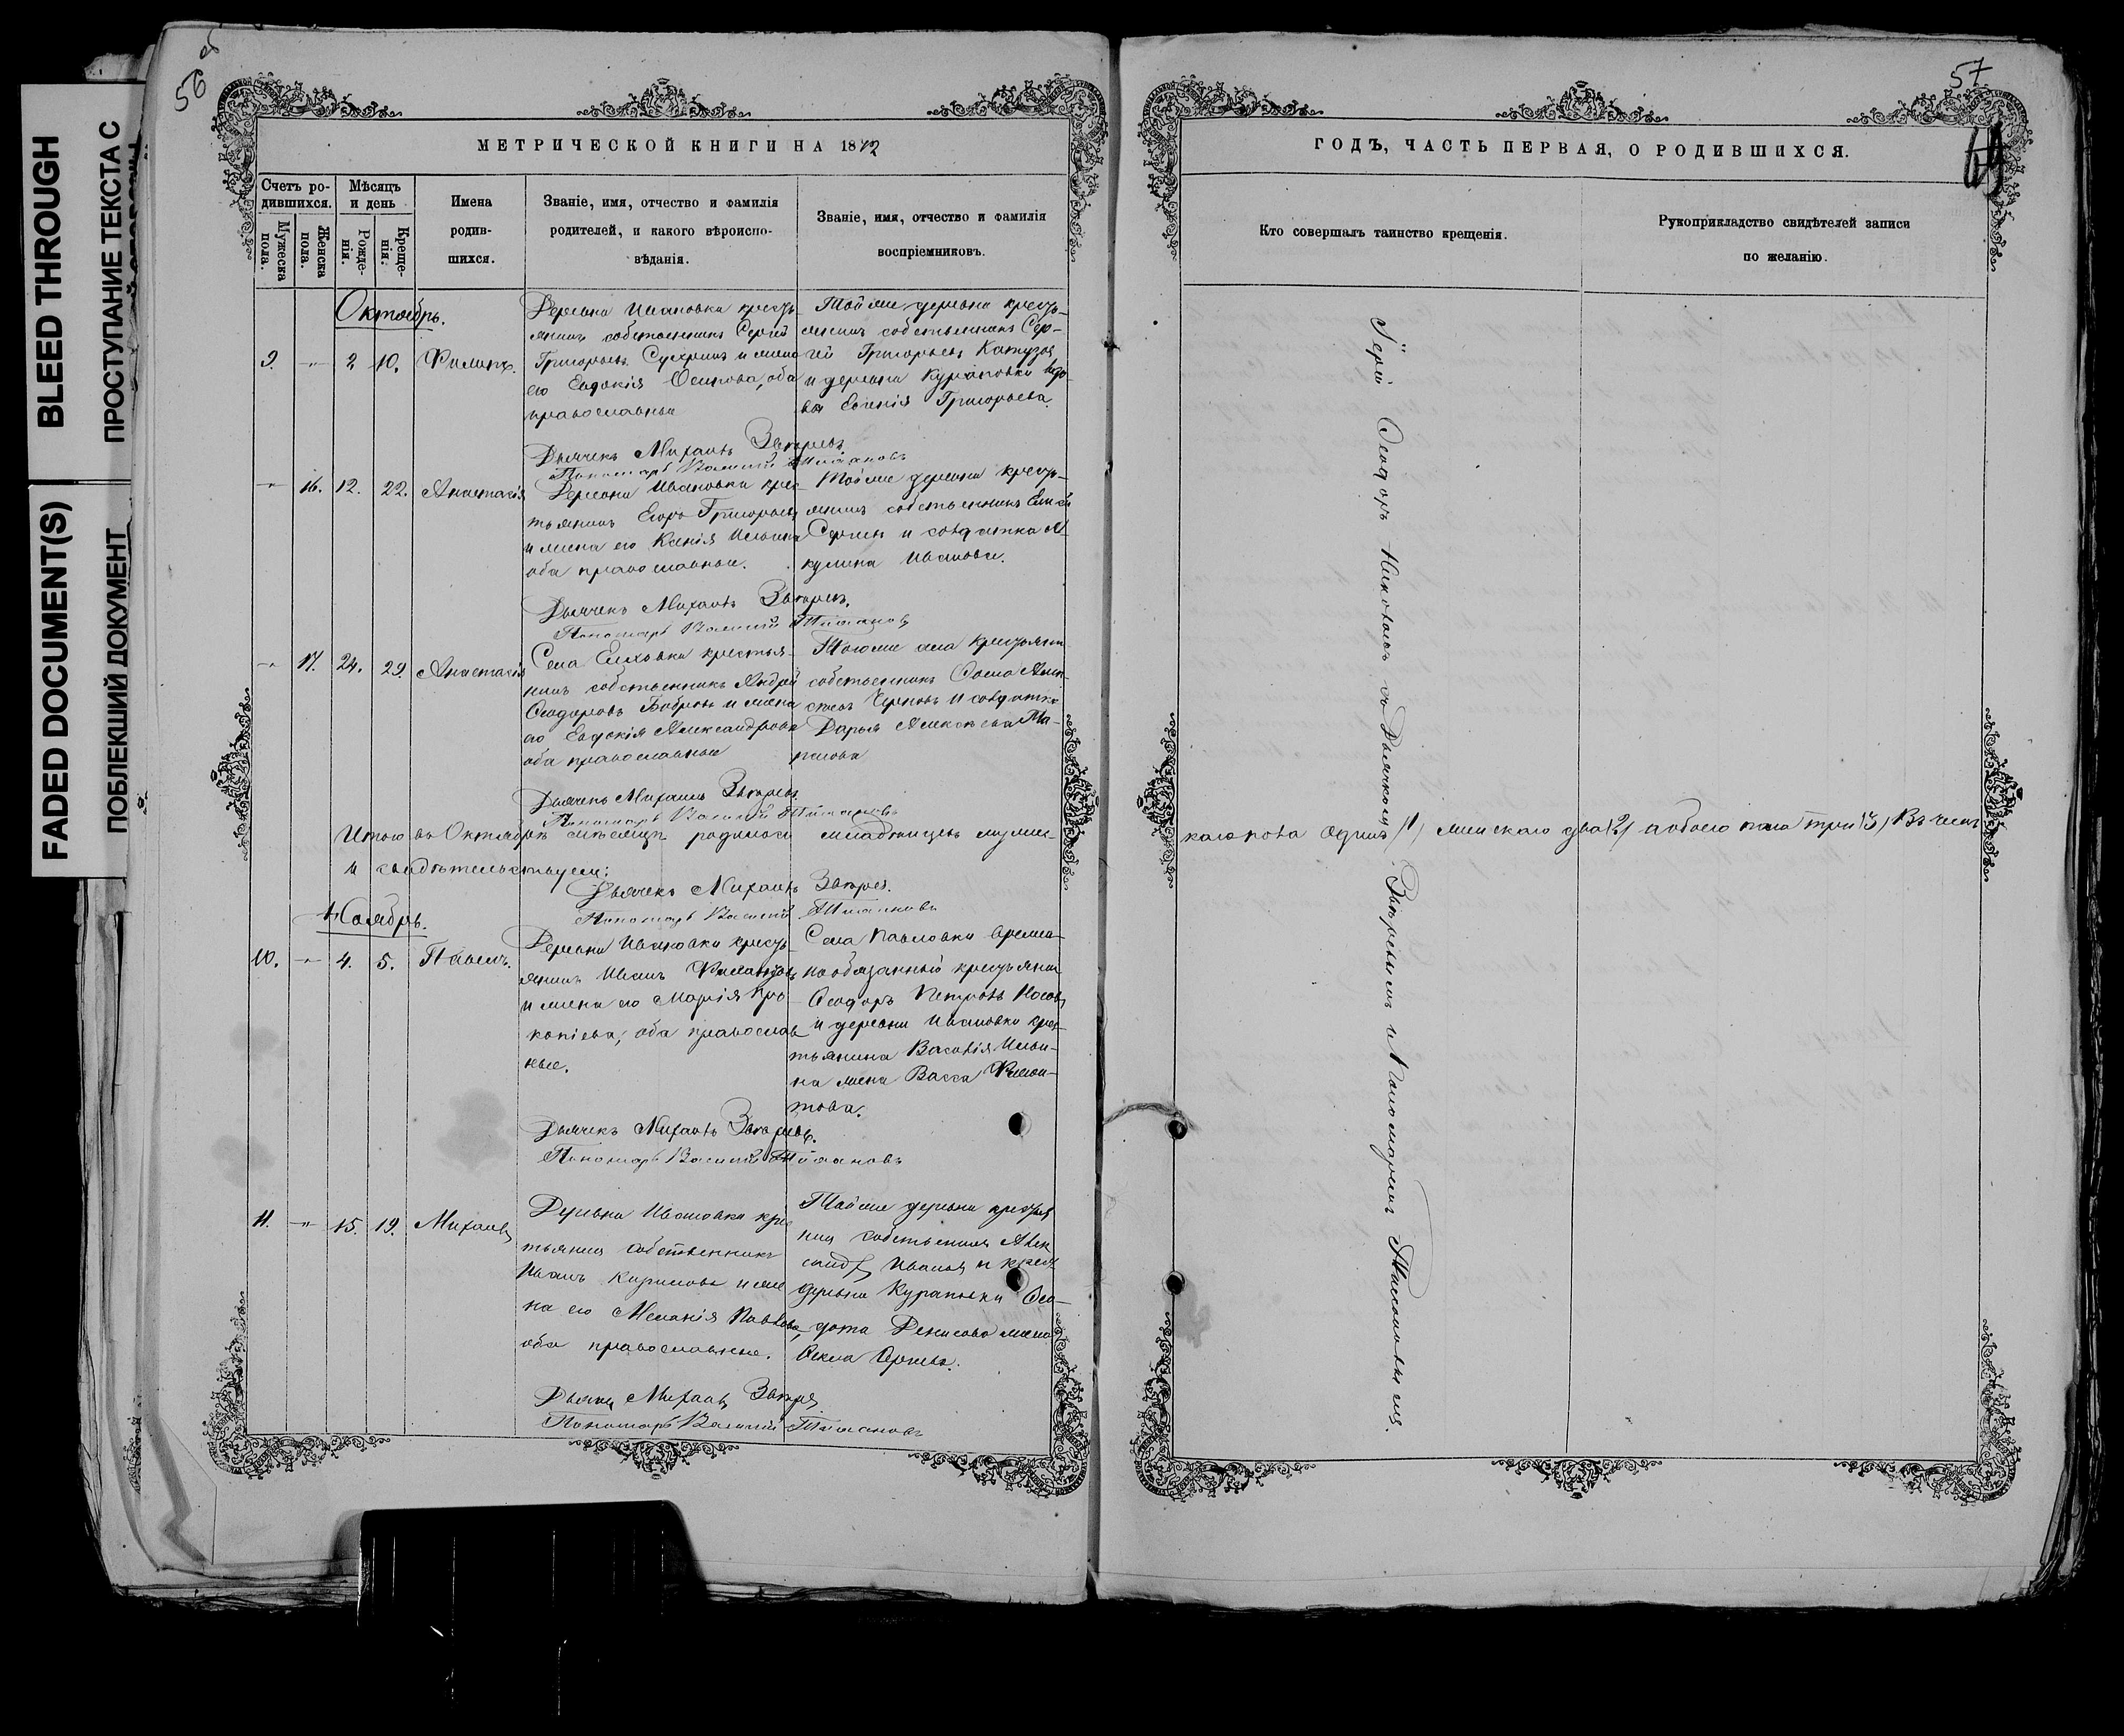 BLEED THROUGH
ПРОСТУПАНИЕ ТЕКСТА С
FADED DOCUMENT(S)
ПОБЛЕКШИЙ ДОКУМЕНТ
56 об
МЕТРИЧЕСКОЙ КНИГИ НА 1872
Счетъ ро-
дившихся.
Мужеска
пола.
Женска
пола.
Мѣсяцъ
и день
Рожде-
нія.
Креще-
нія.
Имена
родив-
шихся.
Званіе, имя, отчество и фамилія
родителей, и какого вѣроиспо-
вѣданія.
Званіе, имя, отчество и фамилія
воспріемниковъ.
Октябрь.
9. -"- 2 10. Филипъ.
Деревни Ивановки кресть-
янинъ собственникъ Сергій
Григорьевъ и жена
его Евдокія Осипова, оба
православные
Тойже деревни кресть-
янинъ собственникъ Сер-
гей Григорьевъ
и деревни Курановки вдо-
ва Евгенія Григорьева.
Дьячекъ Михаилъ Звѣревъ
Пономарь Василій
-"- 16. 12. 22. Анастасія
Деревни Ивановки крес-
тьянинъ Егоръ Григорьевъ
и жена его Ксенія Ильина
оба православные.
Тойже деревни кресть-
янинъ собственникъ
Сергѣевъ и солдатка А-
кулина Иванова.
Дьячекъ Михаилъ Звѣревъ.
Пономарь Василій
-"- 17. 24. 29. Анастасія
Села Елховки крестья-
нинъ собственникъ Андрей
Ѳеодоровъ Бобровъ и жена
его Евдокія Александрова
оба православные
Тогоже села крестьянинъ
собственникъ Ѳома Алек-
сѣевъ Черновъ и солдатка
Дарья Алексѣева
Дьячекъ Михаилъ Звѣревъ
Пономарь Василій
Итого въ Октябрѣ мѣсяцѣ родилось младенцевъ мужес-
и свидѣтельствуемъ:
Дьячекъ Михаилъ Звѣревъ.
Пономарь Василій
Ноябрь.
10. -"- 4. 5. Павелъ.
Деревни Ивановки кресть-
янинъ Иванъ Филиповъ
и жена его Марія Про-
копіева; оба православ-
ные.
Села Павловки времен-
нообязанный крестьянинъ
Ѳеодоръ Петровъ Носовъ
и деревни Ивановки крес-
тьянина Василія Ильи-
на жена Васса
Дьячекъ Михаилъ Звѣревъ.
Пономарь Василій
11. -"- 15. 19. Михаилъ
Деревни Ивановки крес
тьянинъ собственникъ
Иванъ Кириловъ и же
на его Меланія Павлова,
оба православные.
Тойже деревни крестья
нинъ собственникъ Алек
сандръ Ивановъ и крест.
деревни Курановки Ѳео-
дота Денисова жена
Ѳекла Сергѣева.
Дьячекъ Михаилъ Звѣревъ
Пономарь Василій
57
ГОДЪ, ЧАСТЬ ПЕРВАЯ, О РОДИВШИХСЯ.
Кто совершалъ таинство крещенія.
Рукоприкладство свидѣтелей записи
по желанію.
Іерей Ѳеодоръ Никольскій съ Дьячкомъ Звѣревымъ и Пономаремъ
каго пола одинъ /1/ женскаго два /2/ а обоего пола три /3/ Въ чемъ